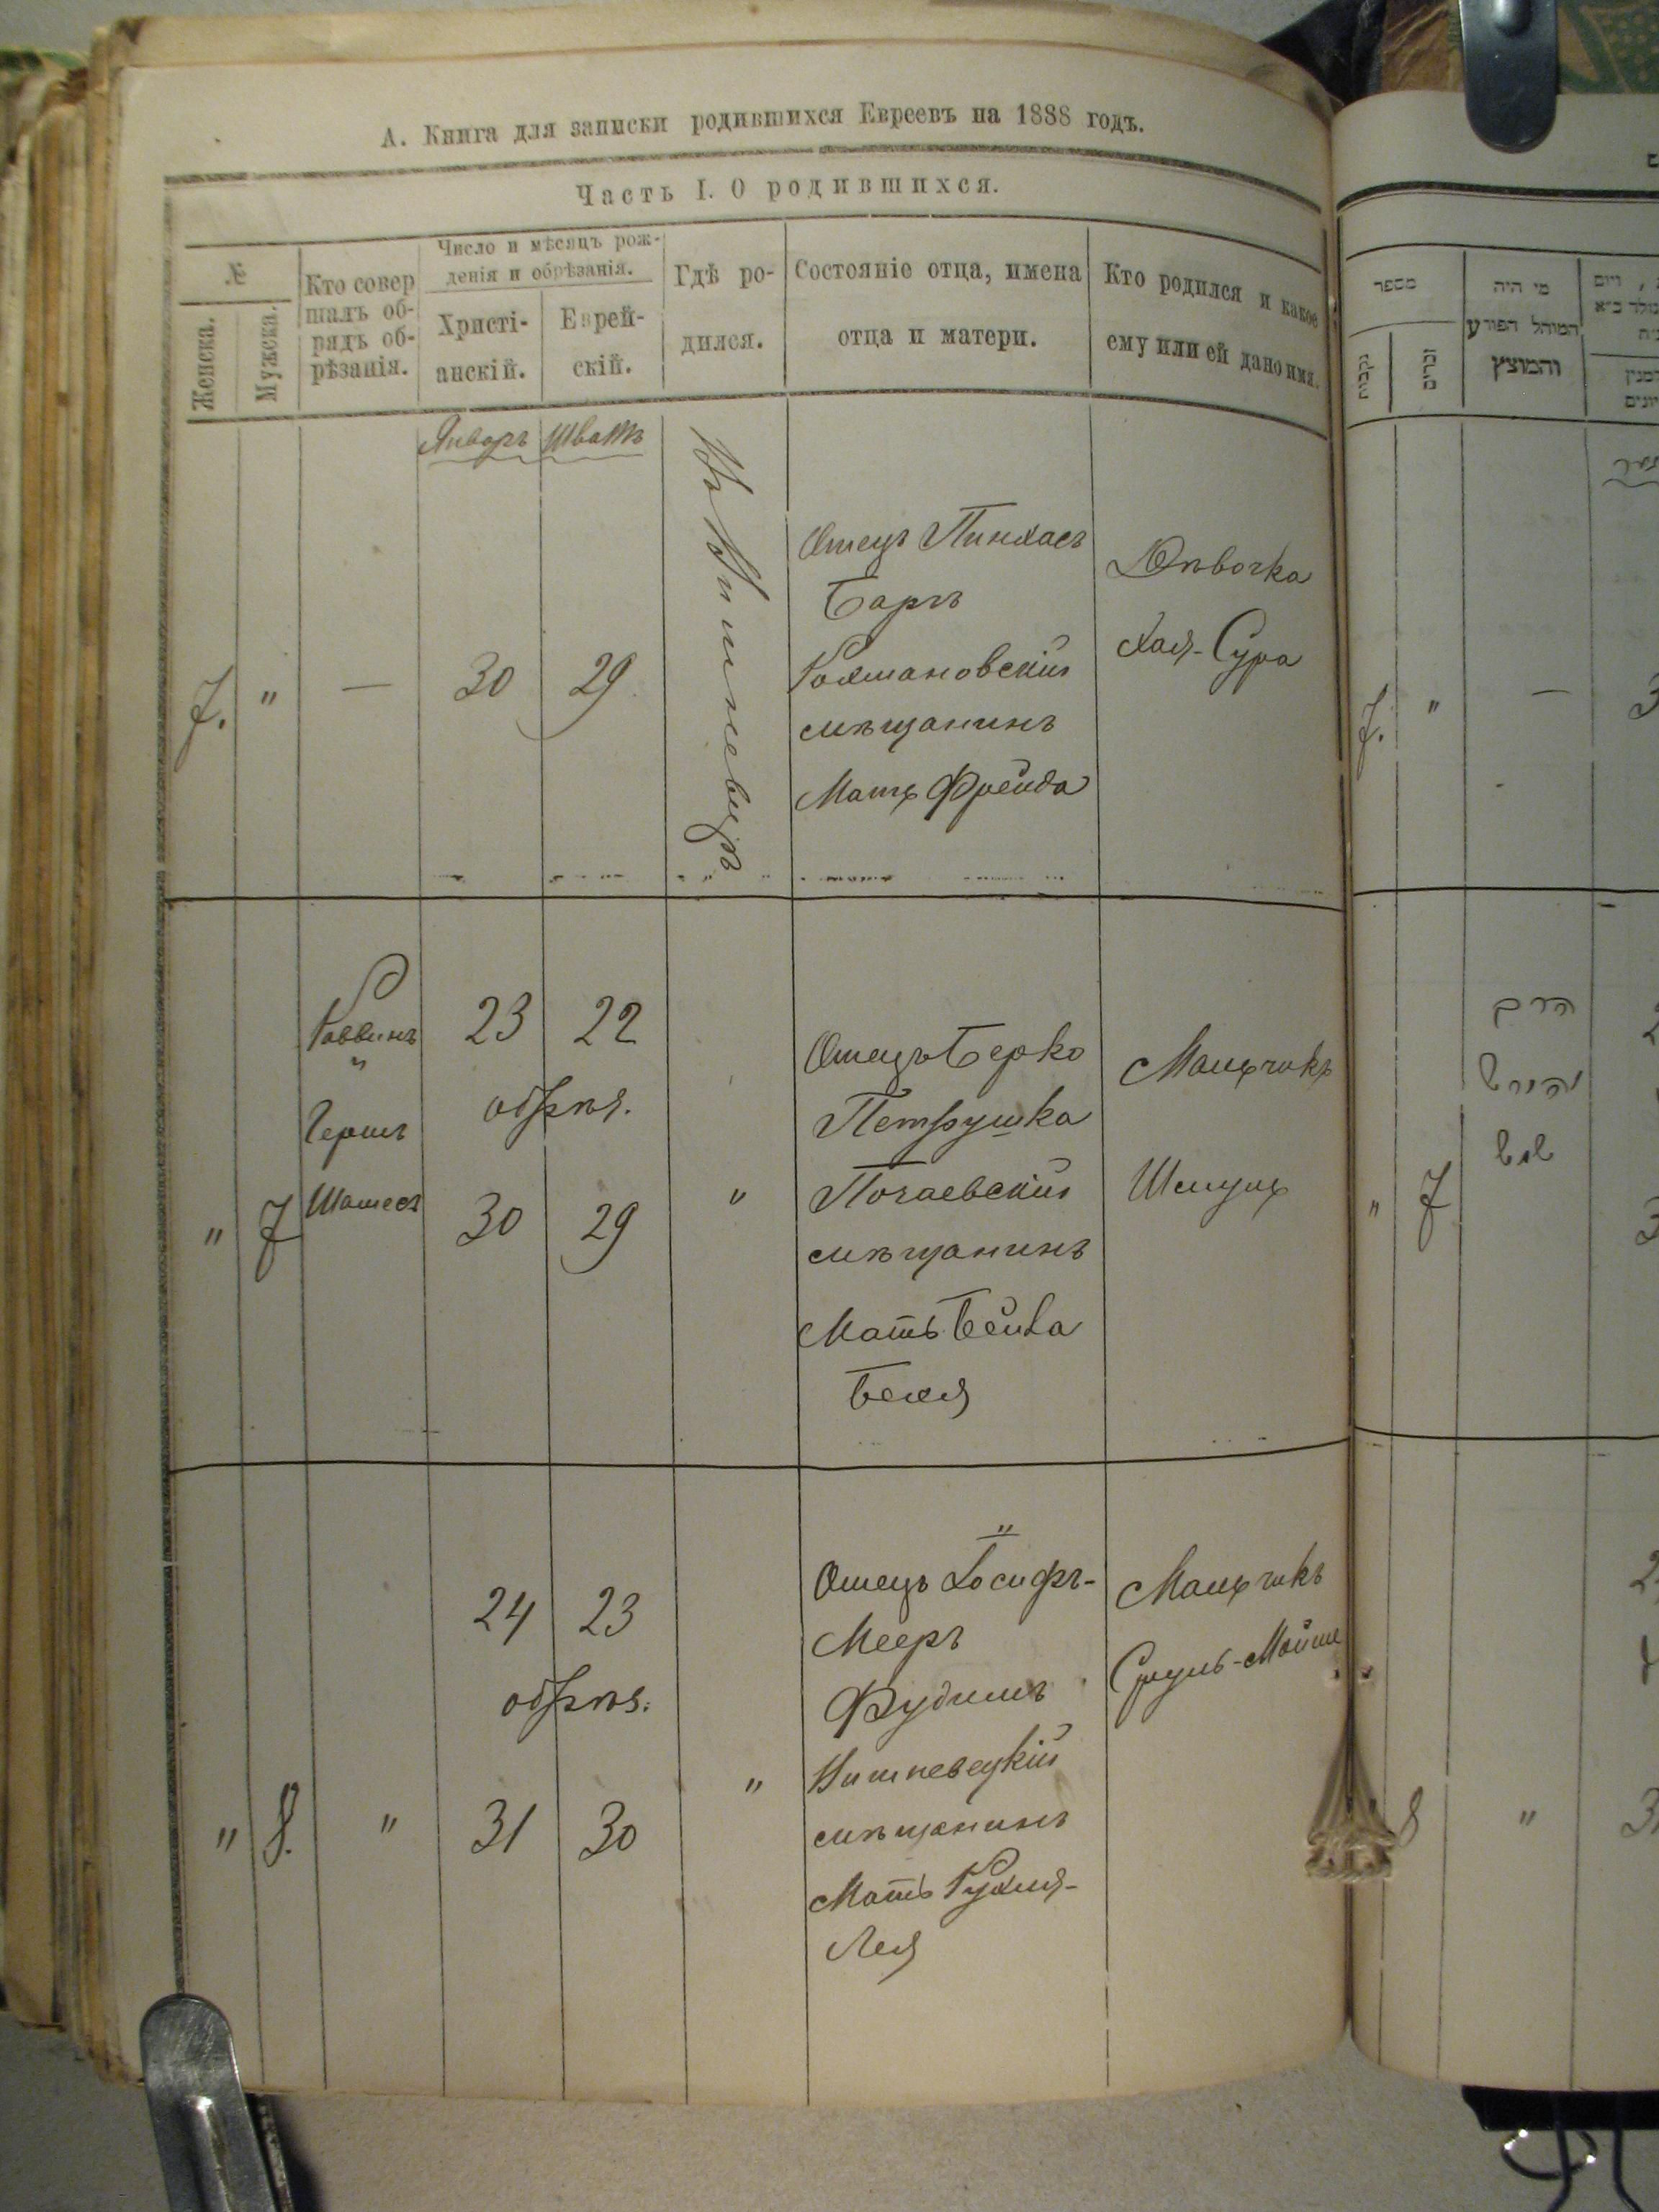 А. Книга для записки родившихся Евреевъ на 1888 годъ.
Часть I. О родившихся.
№
Женска.
Мужска.
Кто совер
шалъ об-
рядъ об-
рѣзанія.
Число и мѣсяцъ рож-
денія и обрѣзанія.
Христі-
анскій.
Еврей-
скій.
Гдѣ ро-
дился.
Состояніе отца, имена
отца и матери.
Кто родился и какое
ему или ей дано имя.
Январь Шватъ
7. " — 30 29
Въ Вишневцѣ
Отецъ Пинхасъ
Баргъ
мѣщанинъ
Мать Фрейда
Дѣвочка
Хая-Сура
" 7
Раввинъ
"
Гершъ
23 22
обрѣз.
30 29
"
Отецъ Берко
Петрушка
Почаевскій
мѣщанинъ
Мать Бейла
Мальчикъ
Шмуль
" 8. "
24 23
обрѣз.
31 30
"
Отецъ Іосифъ-
Мееръ
Фудимъ
Вишневецкій
мѣщанинъ
Мать Рухля-
Лея
Мальчикъ
Сруль-Мойше
מספר
נקבות
זכרים
מי היה
המוהל הפורע
והמוצץ
7. " —
" 7
הרב
8 "